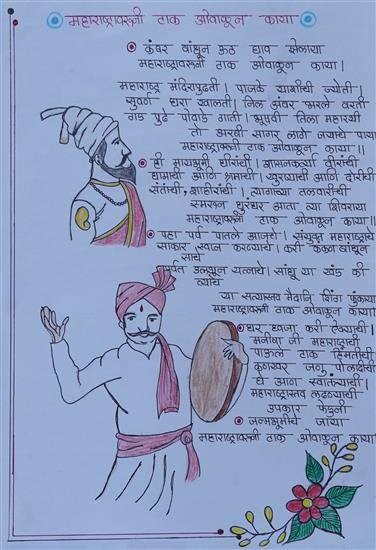 महाराष्ट्रावरूनी टाक ओवाळून काया
कंबर बांधून ऊठ घाव झेलाया
महाराष्ट्रावरूनी टाक ओवाळून काया।
महाराष्ट्र मंदिरापुढती। पाजळे याशीची ज्योती।
सुवर्ण धरा खालती। निल अंबर भरले वरती
गड पुढे पोवाडे गाती। भूषवी तिला महारथी
तो अरबी सागर लागे जयाचे पाया
महाराष्ट्रावरूनी टाक ओवाळून काया॥
ही मायभूमी धीरांची। शासनकर्त्या वीरांची
घामाची आणि श्रमाची। खुराप्याची आणि दोरीची
संतांची, शाहीरांची। त्यागाच्या तलवारीची
स्मरून धुरंधर आता त्या शिवराया
महाराष्ट्रावरूनी टाक ओवाळून काया॥
पहा पर्व पातले आजचे। संयुक्त महाराष्ट्राचे
साकार स्वप्न करण्याचे। करी कंकण बांधून
साचे
पर्वत उलथून यत्नाचे। सांधू या खंड की
त्याचे
या सत्यास्तव मैदानि शिंग फुंकाया
महाराष्ट्रावरूनी टाक ओवाळून काया
धर ध्वजा करी ऐक्याची।
मनीषा जी महाराष्ट्राची
पाऊले टाक हिंमतीची
कणखर जणू पोलादीची
घे आण स्वातंत्र्याची।
महाराष्ट्रास्तव लढण्याची
उपकार फेडुनी
जन्मभूमीचे जाया
महाराष्ट्रावरूनी टाक ओवाळून काया